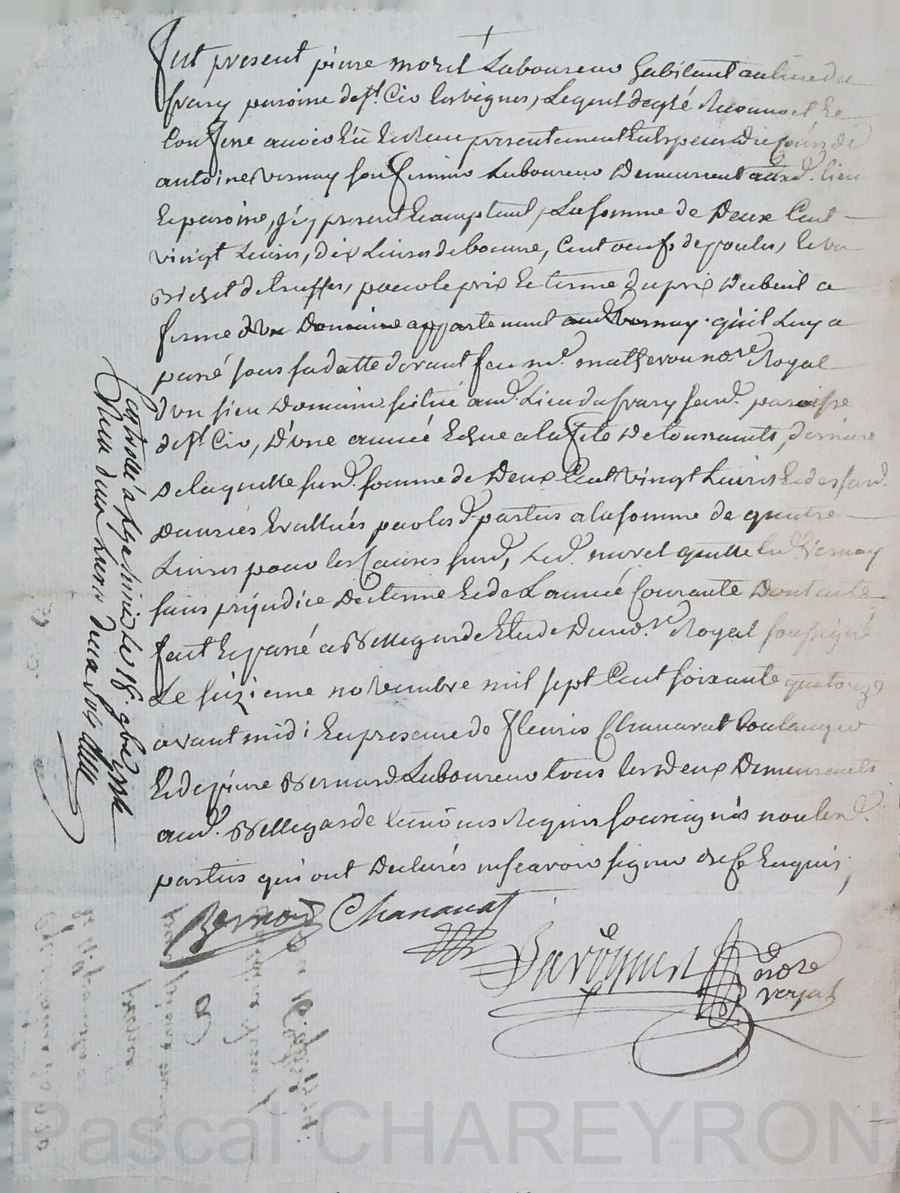 fut present pierre morel Laboureur habitant au lieu du
frary paroisse de St. Cir les vignes, Lequel de gré Reconnoit, Et
Confesse avoir Eü Et Reçu presentement Et
antoine Vernay son fermier Laboureur Demeurant aud. lieu
Et paroisse, icy present Et acceptant, La somme de Deux Cent
vingt Livres, dix Livres de beurre, Cent oeufs de poules, Et un
Bichet de truffes, pour le prix Et terme du prix Du beuil a
ferme d'un Domaine appartenant aud. Vernay qu'il Luy a
passé sous sa datte devant feu me. matheron nore. Royal
d'un sieu Domaine scitué aud. Lieu du frary surd. paroisse
de St. Cir, D'une année Echue a la fete De toussaints, derniere
De laquelle surd. somme de Deux Cent Vingt Livres Et des surd.
Danrées Evalluées par les d. parties a la somme de quatre
Livres pour les Causes surd., Led. morel quitte led. Vernay
sans prejudice De terme Et de L'année Courante Dont acte
fait Et passé a Bellegarde Etude Du nore. Royal soussigné
Le seizieme novembre mil sept Cent soixante quatorze
avant midi En presence de fleurie Chanavat boulanger
Et de pierre Bernard Laboureur tous les Deux Demeurants
aud. Bellegarde temoins Requis soussignés non les d.
parties qui ont Declarés ne scavoir signer de ce Enquis,
Bernard Chanavat
nore
royal
Controllé a le 18. 9bre 1774
Reçu
Pascal CHAREYRON